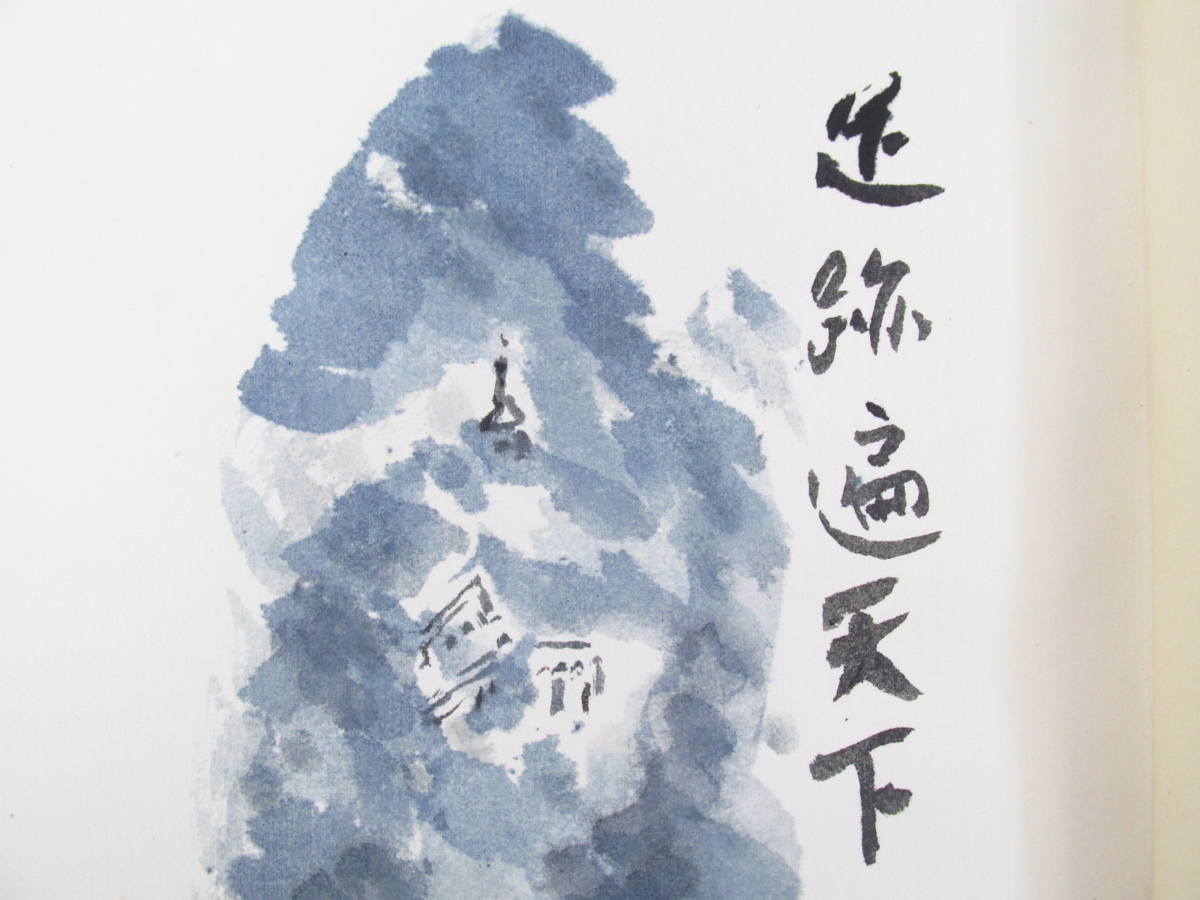 足跡遍天下